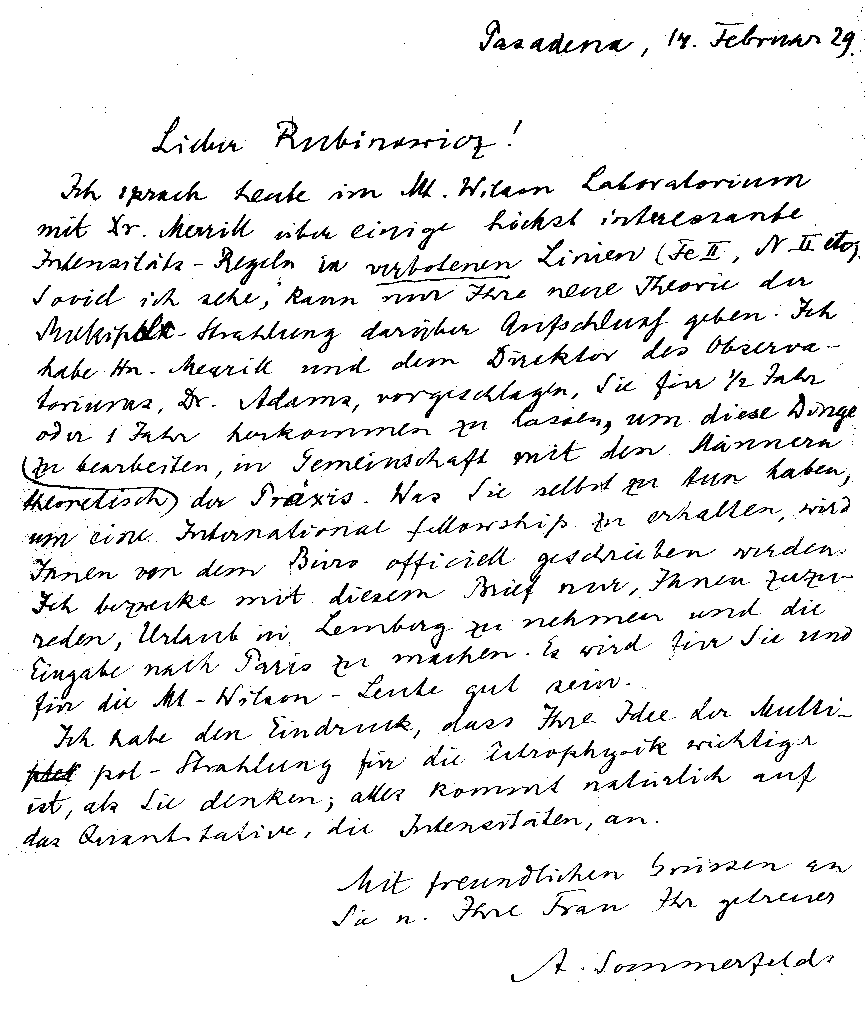 Pasadena, 14. Februar 29.
Lieber Rubinowicz!
Ich sprach heute im Mt. Wilson Laboratorium
mit Dr. Merrill über einige höchst interessante
Intensitäts-Regeln in verbotenen Linien (Fe II, N II etc).
Soviel ich sehe, kann nur Ihre neue Theorie der
Strahlung darüber Aufschluss geben. Ich
habe Hn. Merrill und dem Direktor des Observa-
toriums, Dr. Adams, vorgeschlagen, Sie für 1/2 Jahr
oder 1 Jahr herkommen zu lassen, um diese Dinge
zu bearbeiten, in Gemeinschaft mit den Männern
theoretisch) der Praxis. Was Sie selbst zu tun haben,
um eine International fellowship zu erhalten, wird
Ihnen von dem Büro officiell geschrieben werden.
Ich bezwecke mit diesem Brief nur, Ihnen zuzu-
reden, Urlaub in Lemberg zu nehmen und die
Eingabe nach Paris zu machen. Es wird für Sie und
für die Mt-Wilson-Leute gut sein.
Ich habe den Eindruck, dass Ihre Idee der Multi-
pol-Strahlung für die Astrophysik wichtiger
ist, als Sie denken; alles kommt natürlich auf
das Quantitative, die Intensitäten, an.
Mit freundlichen Grüssen an
Sie u. Ihre Frau Ihr getreuer
A. Sommerfeld.